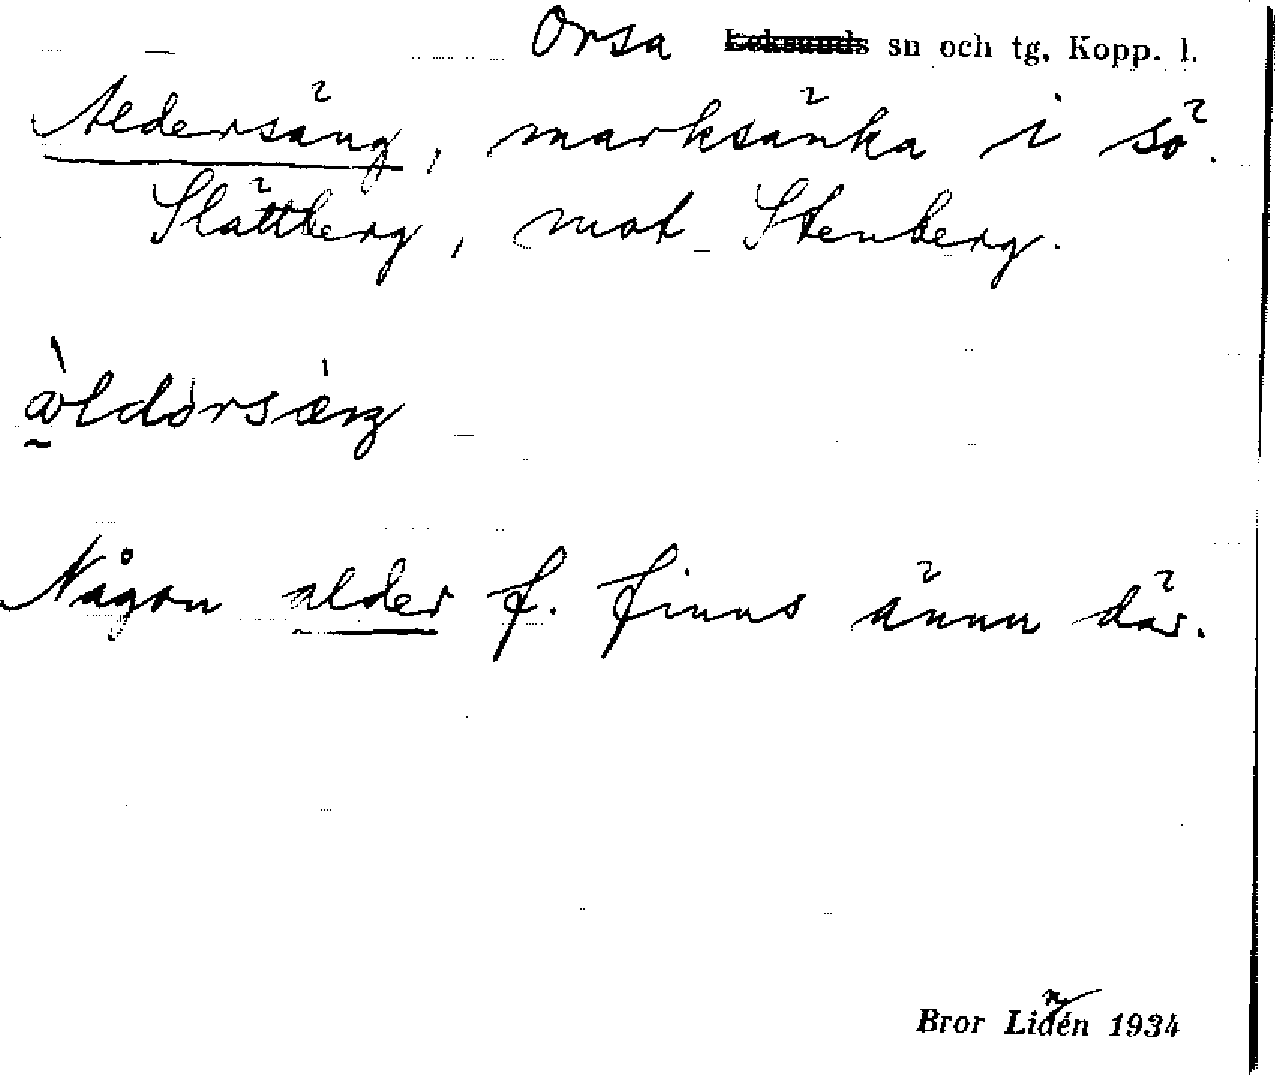 Orsa Leksands sn och tg, Kopp. l.
Aldersäng, marksänka i sö.
Slättberg, mot Stenberg.
Någon alder f. finns ännu där.
Bror Lidén 1934